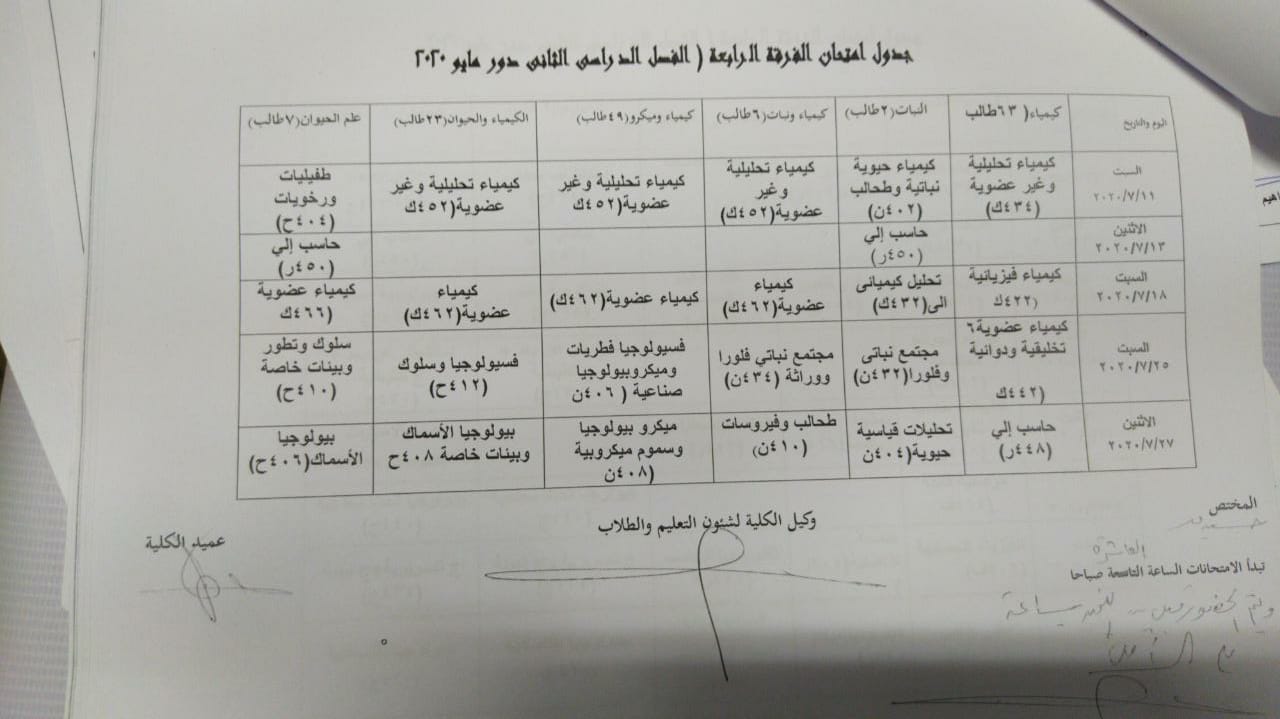 جدول امتحان الفرقة الرابعة ( الفصل الدراسى الثانى دور مايو ٢٠٢٠
اليوم والتاريخ
كيمياء( ٦٣طالب
النبات(٢طالب)
كيمياء ونبات(٦طالب)
كيمياء وميكرو(٤٩طالب)
الكيمياء والحيوان(٢٣طالب)
علم الحيوان(٧طالب)
السبت
٢٠٢٠/٧/١١
كيمياء تحليلية
وغير عضوية
(٤٣٤ك)
كيمياء حيوية
نباتية وطحالب
(٤٠٢ن)
كيمياء تحليلية
وغير
عضوية(٤٥٢ك)
كيمياء تحليلية وغير
عضوية(٤٥٢ك
كيمياء تحليلية وغير
عضوية(٤٥٢ك
طفيليات
ورخويات
(٤٠٤ح)
الاثنين
٢٠٢٠/٧/١٣
حاسب إلي
(٤٥٠ر)
حاسب إلي
(٤٥٠ر)
السبت
٢٠٢٠/٧/١٨
كيمياء فيزيائية
(٤٢٢ك
تحليل كيميائى
الى(٤٣٢ك)
كيمياء
عضوية(٤٦٢ك)
كيمياء عضوية(٤٦٢ك)
كيمياء
عضوية(٤٦٢ك)
كيمياء عضوية
(٤٦٦ك
السبت
٢٠٢٠/٧/٢٥
كيمياء عضوية٦
تخليقية ودوائية
(٤٤٢ك
مجتمع نباتى
وفلورا(٤٣٢ن)
مجتمع نباتي فلورا
ووراثة (٤٣٤ن)
فسيولوجيا فطريات
وميكروبيولوجيا
صناعية ( ٤٠٦ن
فسيولوجيا وسلوك
(٤١٢ح)
سلوك وتطور
وبيئات خاصة
(٤١٠ح)
الاثنين
٢٠٢٠/٧/٢٧
حاسب إلي
(٤٤٨ر)
تحليلات قياسية
حيوية(٤٠٤ن
طحالب وفيروسات
(٤١٠ن)
ميكرو بيولوجيا
وسموم ميكروبية
(٤٠٨ن
بيولوجيا الأسماك
وبيئات خاصة ٤٠٨ح
بيولوجيا
الأسماك(٤٠٦ح)
المختص
وكيل الكلية لشئون التعليم والطلاب
عميد الكلية
العاشرة
تبدأ الامتحانات الساعة التاسعة صباحا